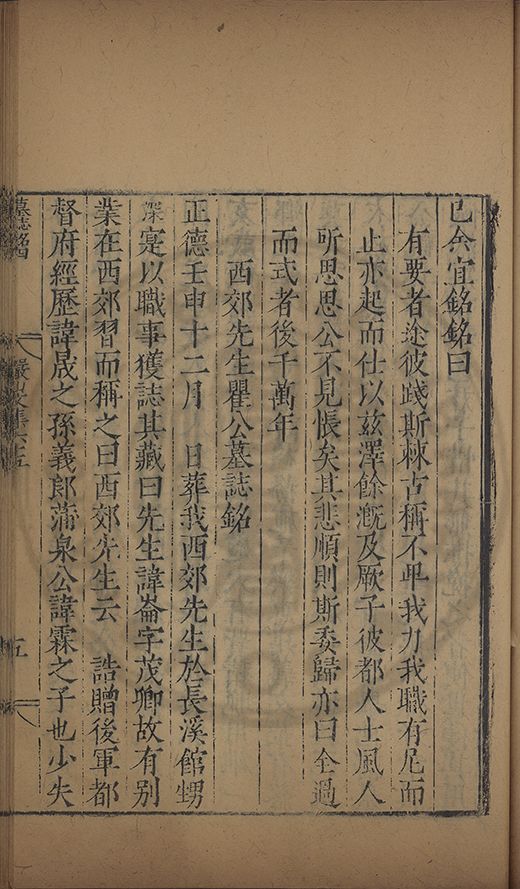 已余宜銘銘曰
有要者途彼踐斯棘古稱不卑我力我職有尼而
止亦起而仕以茲澤餘漑及厥子彼都人士風人
所思思公不見悵矣其悲順則斯委歸亦曰全過
而式者後千萬年
西郊先生瞿公墓誌銘
正德壬申十二月　日葬我西郊先生於長溪館甥
深寔以職事獲誌其藏曰先生諱崙字茂卿故有别
業在西郊習而稱之曰西郊先生云　誥贈後軍都
督府經歷諱晟之孫義郎蒲泉公諱霖之子也少失
墓誌銘
五